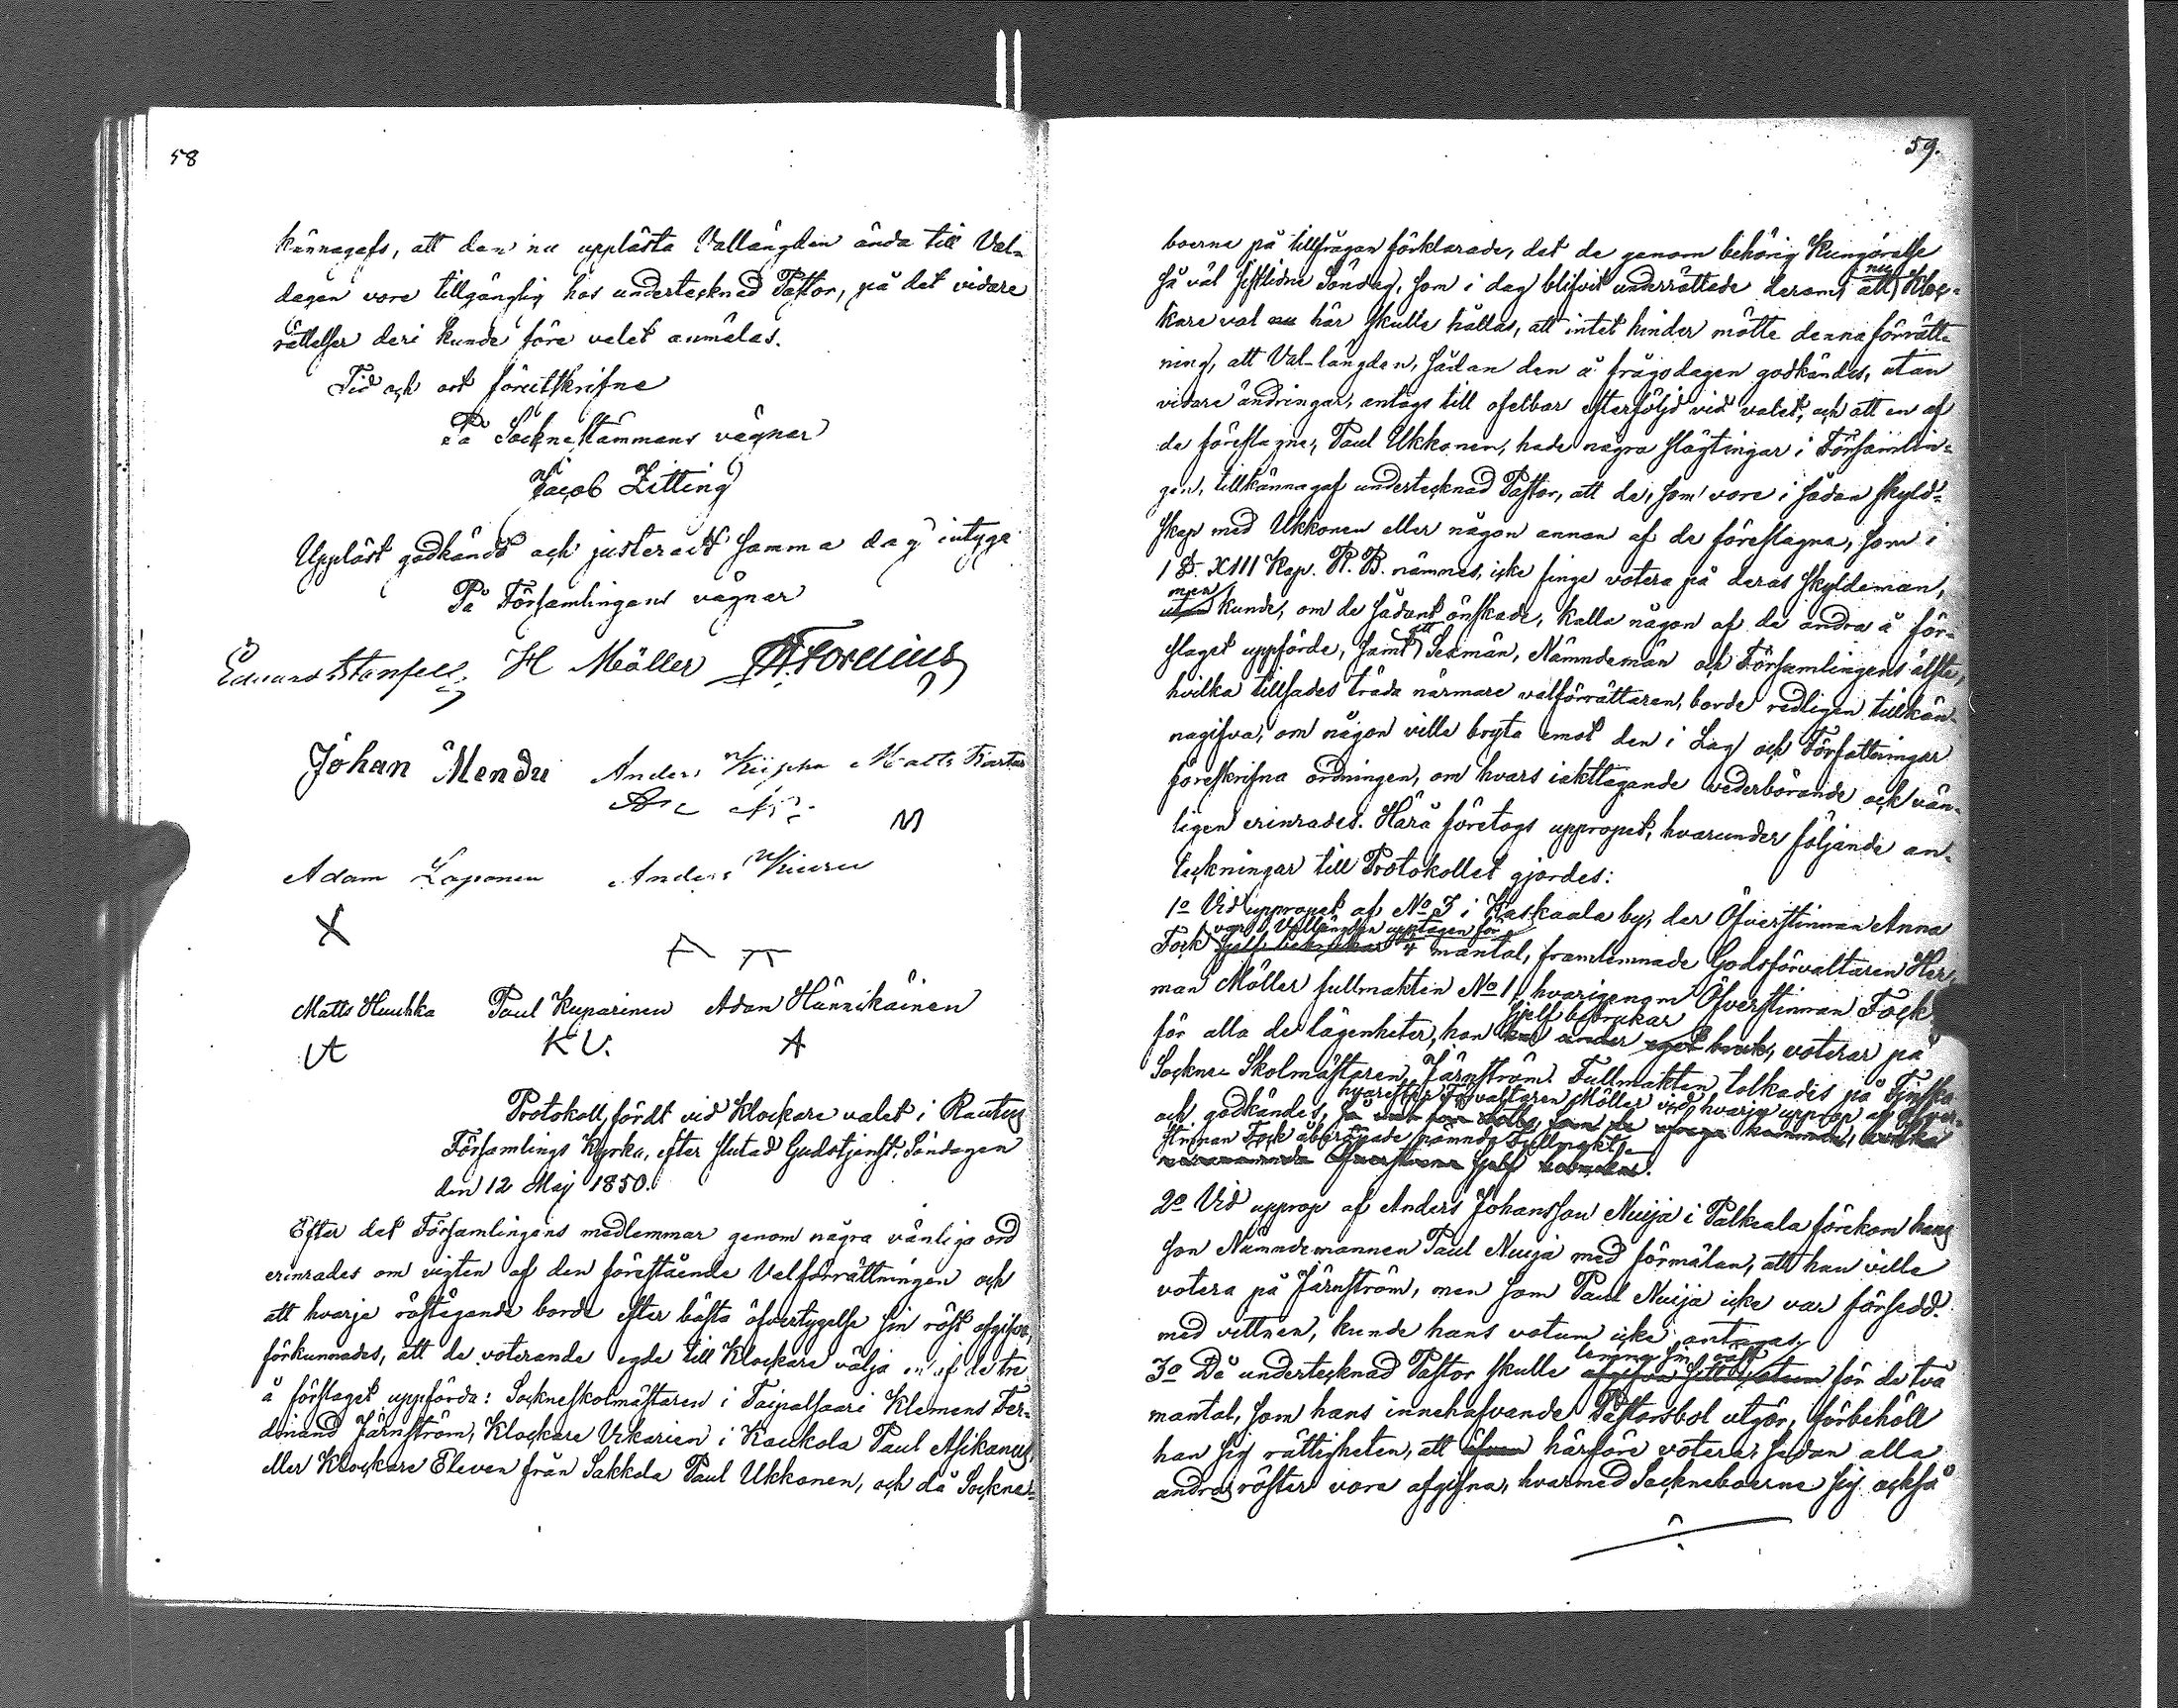 58
kännagafs, att den nu upplästa Vallängden ända till Val-
dagen vore tillgänglig hos undertecknad Pastor, på det vidare
rättelser deri kunde före valet anmälas.
Tid och ort förutskrifne
På Socknestämmans vägnar
Jacob Zitting
Uppläst godkändt och justeradt samma dag intyga
På Församlingens vägnar
Eduard Stanfell H Möller
Johan Mendu Anders Matts
M
Adam Laponen Anders
X
Matts Huuhka Paul Kuparinen Adam Hännikäinen
K U. A
Protokoll, fördt vid Klockare valet i Rautus
Församlings Kyrka, efter slutad Gudstjenst, Söndagen
den 12 Maj 1850.
Efter det Församlingens medlemmar genom några vänliga ord
erinrades om vigten af den förestående Valförrättningen och
att hvarje röstägande borde efter bästa öfvertygelse sin röst afgifva,
förkunnades, att de voterande egde till Klockare välja en af de tre
å förslaget uppförda: Sockneskolmästaren i Taipalsaari Klemens Fer-
dinand Järnström, Klockare Vikarien i Kaukola Paul Asikanus,
eller Klockare Eleven från Sakkola Paul Ukkonen, och då Sockne-
59.
boerne på tillfrågan förklarade, det de genom behörig Kungörelse
så väl sistlidne Söndag, som i dag blifvit underrättade derom, att nu Kloc-
kare val nu här skulle hållas, att intet hinder mötte denna förrätt-
ning, att Val-längden, sådan den å frågodagen godkändes, utan
vidare ändringar, antogs till ofelbar efterföljd vid valet, och att en af
de föreslagne, Paul Ukkonen, hade några slägtingar i Församlin-
gen, tillkännagaf undertecknad Pastor, att de, som vore i sådan skyld-
skap med Ukkonen eller någon annan af de föreslagna, som i
1 §. XIII Kap. R. B. nämnes, icke finge votera på deras skyldeman,
men
utan kunde, om de sådant önskade, kalla någon af de andra å för-
slaget uppförde, samt att Sexmän, Nämndemän och Församlingens älste,
hvilka tillsades träda närmare valförrättaren, borde redligen tillkän-
nagifva, om någon ville bryta emot den i Lag och Författningar
föreskrifna ordningen, om hvars iakttagande vederbörande ock vän-
ligen erinrades. Härå företogs uppropet, hvarunder följande an-
teckningar till Protokollet gjordes:
1o Vid uppropet af No 3 i Haskaala by, der Öfverstinnan Anna
var i Vallängden upptagen för
Fock mantal, framlemnade Godsförvaltaren Her-
man Möller fullmakten No 1, hvarigenom Öfverstinnan Fock
sjelf bebrukar
för alla de lägenheter, hon har under eget bruk, voterar på
Sockne Skolmästaren Järnström. Fullmakten tolkades på Finska
hvarefter Förvaltaren Möller vid hvarje upprop af Öfver-
och godkändes,
stinnan Fock åberopade nämnda Fullmakt.
2o Vid upprop af Anders Johansson Nuija i Palkeala förekom hans
son Nämndemannen Paul Nuija med förmälan, att han ville
votera på Järnström, men som Paul Nuija icke var försedd
med vittnen, kunde hans votum icke antagas.
lemna sin röst
3o Då undertecknad Pastor skulle afgifva sitt votum för de två
mantal, som hans innehafvande Pastorsbol utgör, förbehöll
han sig rättigheten, att äfven härföre votera, sedan alla
andra röster vore afgifna, hvarmed Sockneboerne sig också